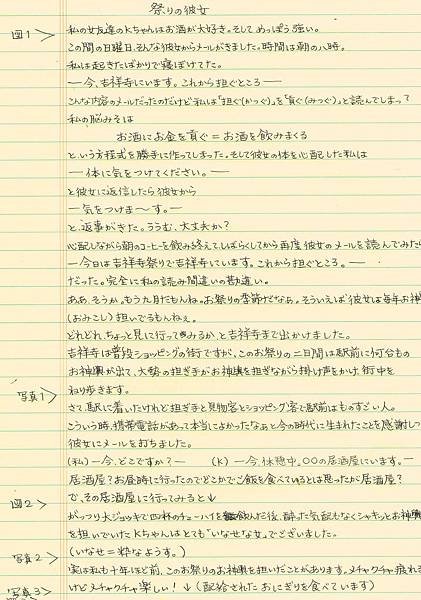 祭りの彼女
図1> 私の女友達のKちゃんはお酒が大好き。そして、めっぽう強い。
この間の日曜日、そんな彼女からメールがきました。時間は朝の八時。
私は起きたばかりで寝ぼけてた。
―今、吉祥寺にいます。これから担ぐところ―
こんな内容のメールだったのだけど私は「担ぐ(かつぐ)」を「貢ぐ(みつぐ)」と読んでしまって
私の脳みそは
お酒にお金を貢ぐ=お酒を飲みまくる
と、いう方程式を勝手に作ってしまった。そして彼女の体を心配した私は
―体に気をつけてください。―
と彼女に返信したら彼女から
―気をつけま〜す。―
と、返事がきた。ううむ、大丈夫か?
心配しながら朝のコーヒーを飲み終えて、しばらくしてから再度彼女のメールを読んでみたら
―今日は吉祥寺祭りで吉祥寺にいます。これから担ぐところ。―
だった。完全に私の読み間違いの勘違い。
ああ、そうか。もう九月だもんね。お祭りの季節だなぁ。そういえば彼女は毎年お神
(おみこし)担いでるもんねぇ。
どれどれ、ちょっと見に行ってきみるか、と吉祥寺まで出かけました。
吉祥寺は普段ショッピングの街ですが、このお祭りの二日間は駅前に何台もの
お神輿が出て、大勢の担ぎ手がお神輿を担ぎながら掛け声をかけ、街中を
写真1> ねり歩きます。
さて、駅に着いたけれど担ぎ手と見物客とショッピング客で駅前はものすごい人。
こういう時、携帯電話があって本当によかったなぁと今の時代に生まれたことを感謝しつ
彼女にメールを打ちました。
(私)―今、どこですか?― (K)―今、休憩中。○○の居酒屋にいます。―
居酒屋?お昼時に行ったのでどこかでご飯を食べているとは思ったが居酒屋?
図2> で、その居酒屋に行ってみると↓
がっつり大ジョッキで四杯のチューハイを飲んだ後、酔った気配もなくシャキッとお神輿
を担いでいたKちゃんはとても"いなせな女"でございました。
写真2> (いなせ=粋なようす。)
実は私も十年ほど前、このお祭りのお神輿を担いだことがあります。メチャクチャ疲れる
写真3> けどメチャクチャ楽しい!↓(配給されたおにぎりを食べています)